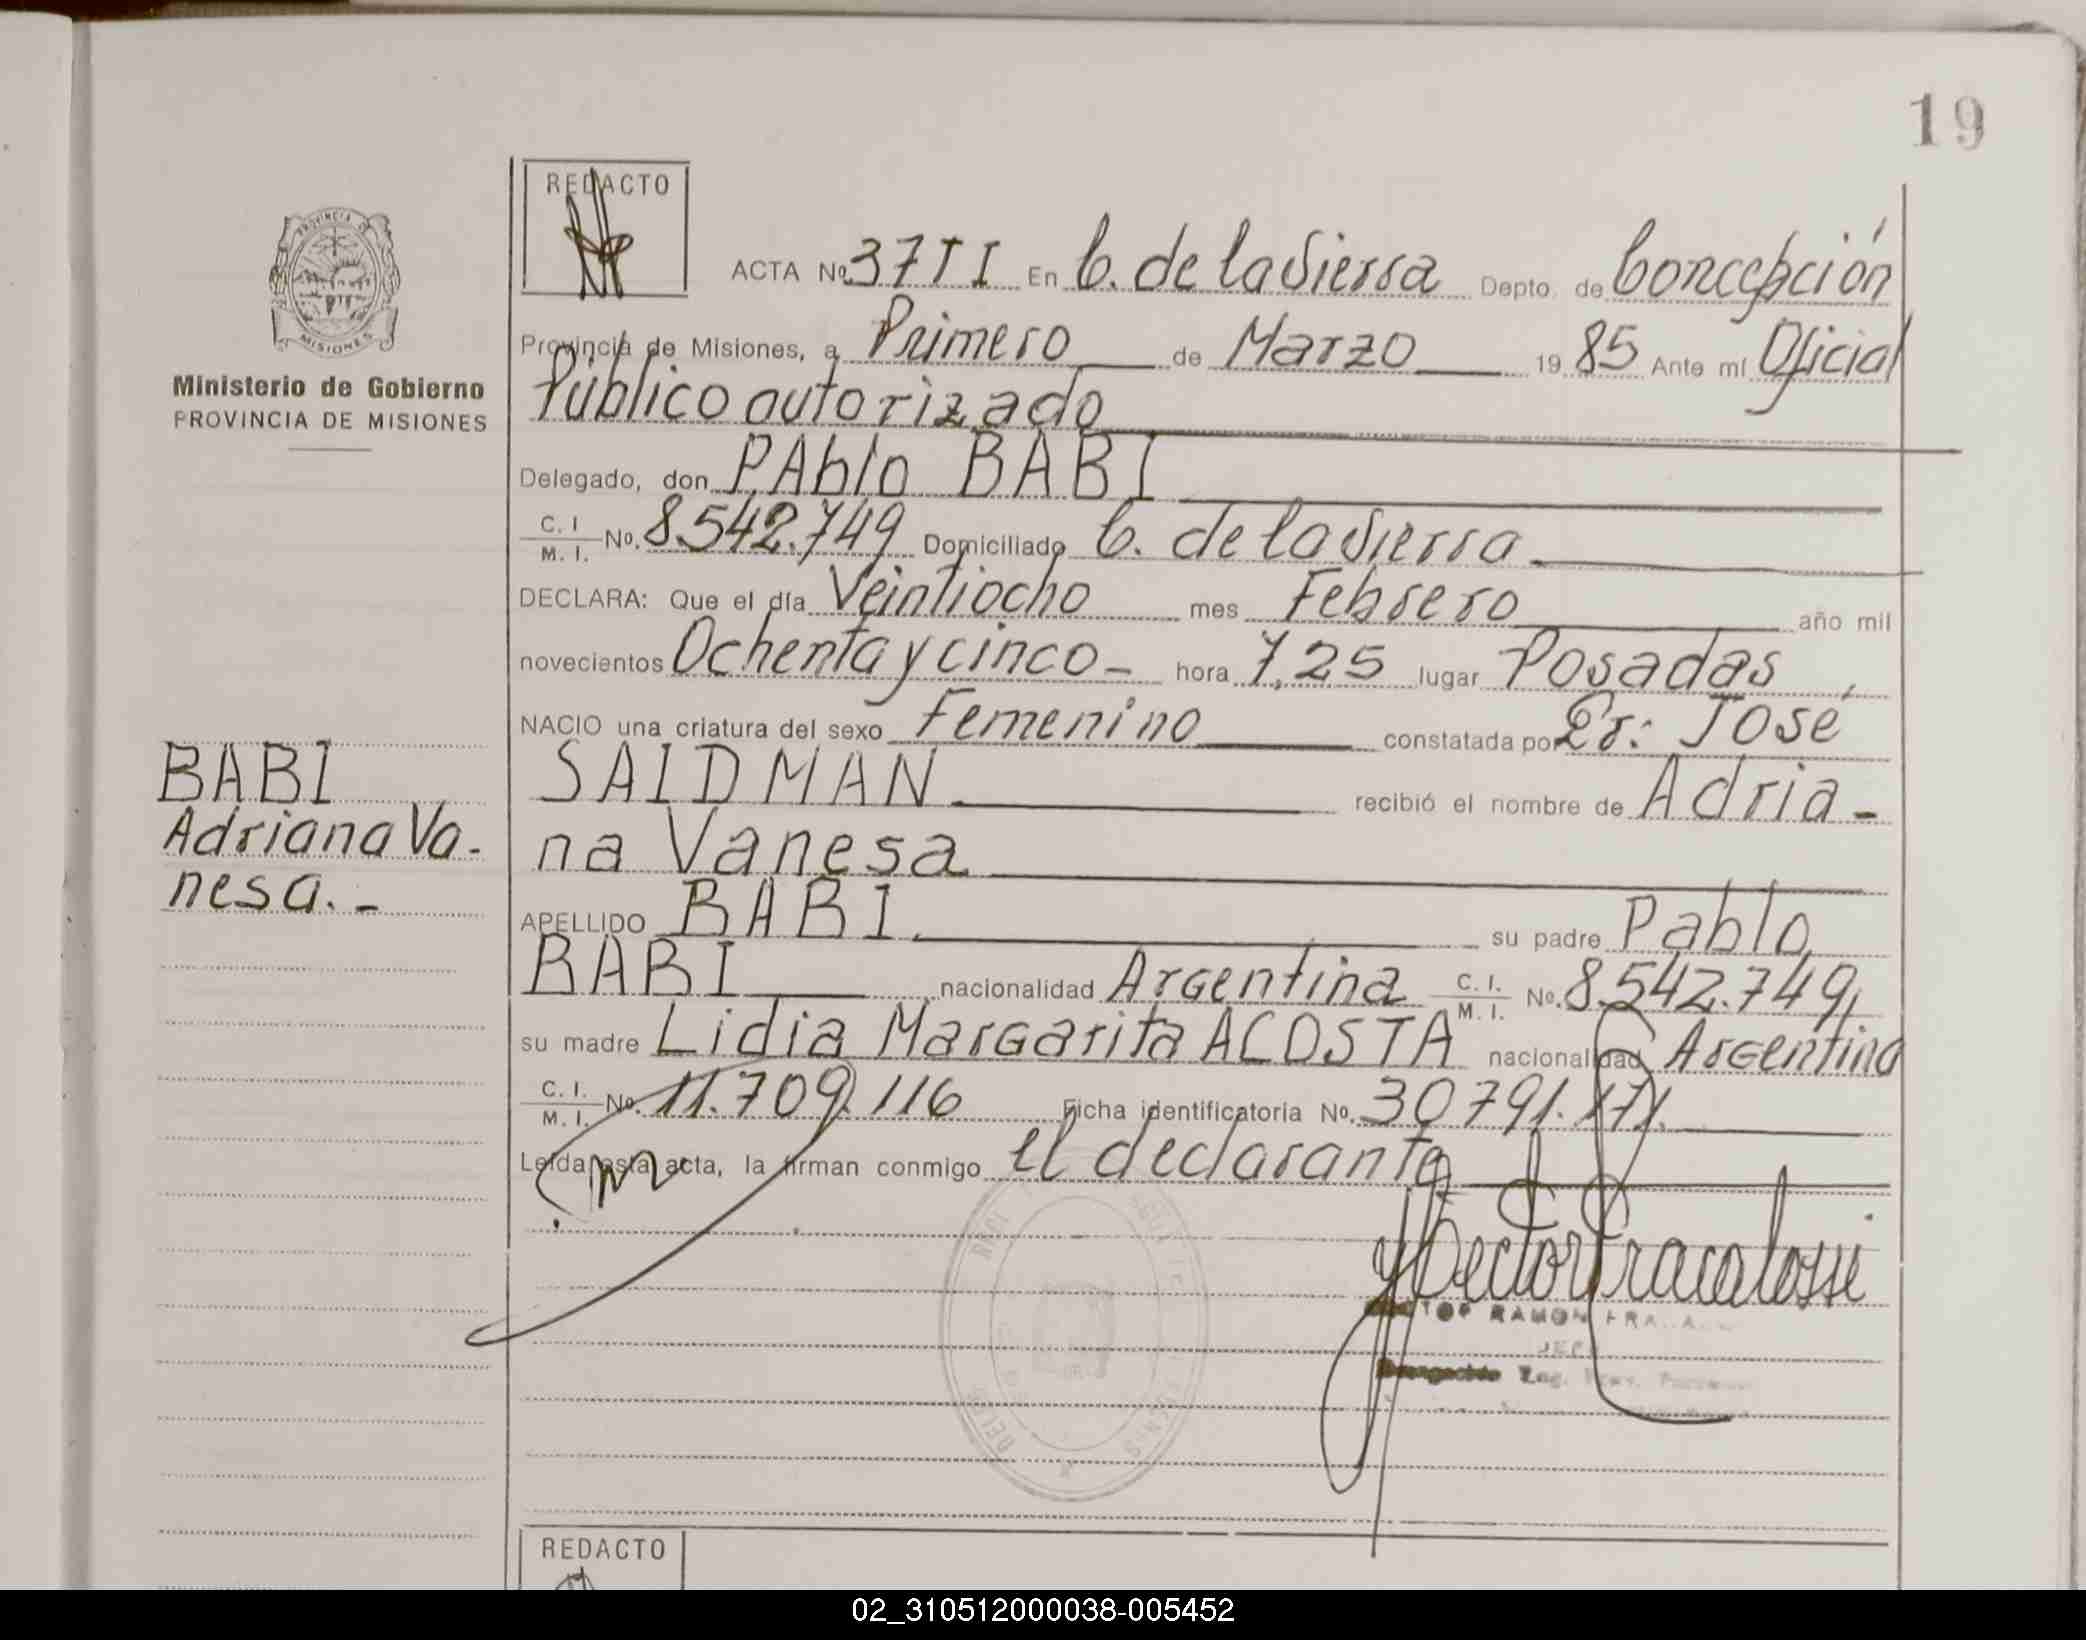 19
REDACTO
ACTA Nº 37 T I En C. de la Sierra Depto. de Concepción
PROVINCIA DE
MISIONES
Provincia de Misiones, a Primero de Marzo 1985 Ante mí Oficial
Ministerio de Gobierno
PROVINCIA DE MISIONES
Público autorizado
Delegado, don PAblo BABI
C. I. M. I. No. 8.542.749 Domiciliado C. de la Sierra
DECLARA: Que el día Veintiocho mes Febrero año mil
novecientos Ochenta y cinco - hora 7,25 lugar Posadas,
NACIO una criatura del sexo Femenino constatada por Dr: José
BABI
Adriana Va-
nesa.-
SAIDMAN recibió el nombre de Adria-
na Vanesa
APELLIDO BABI su padre Pablo
BABI nacionalidad Argentina C. I. M. I. No. 8.542.749,
su madre Lidia Margarita ACOSTA nacionalidad Argentina
C. I. M. I. No. 11.709.116 Ficha identificatoria No. 30791.171.
Leída esta acta, la firman conmigo el declarante
Hector Fracalossi
RAMON
JEFE
REDACTO
02_310512000038-005452